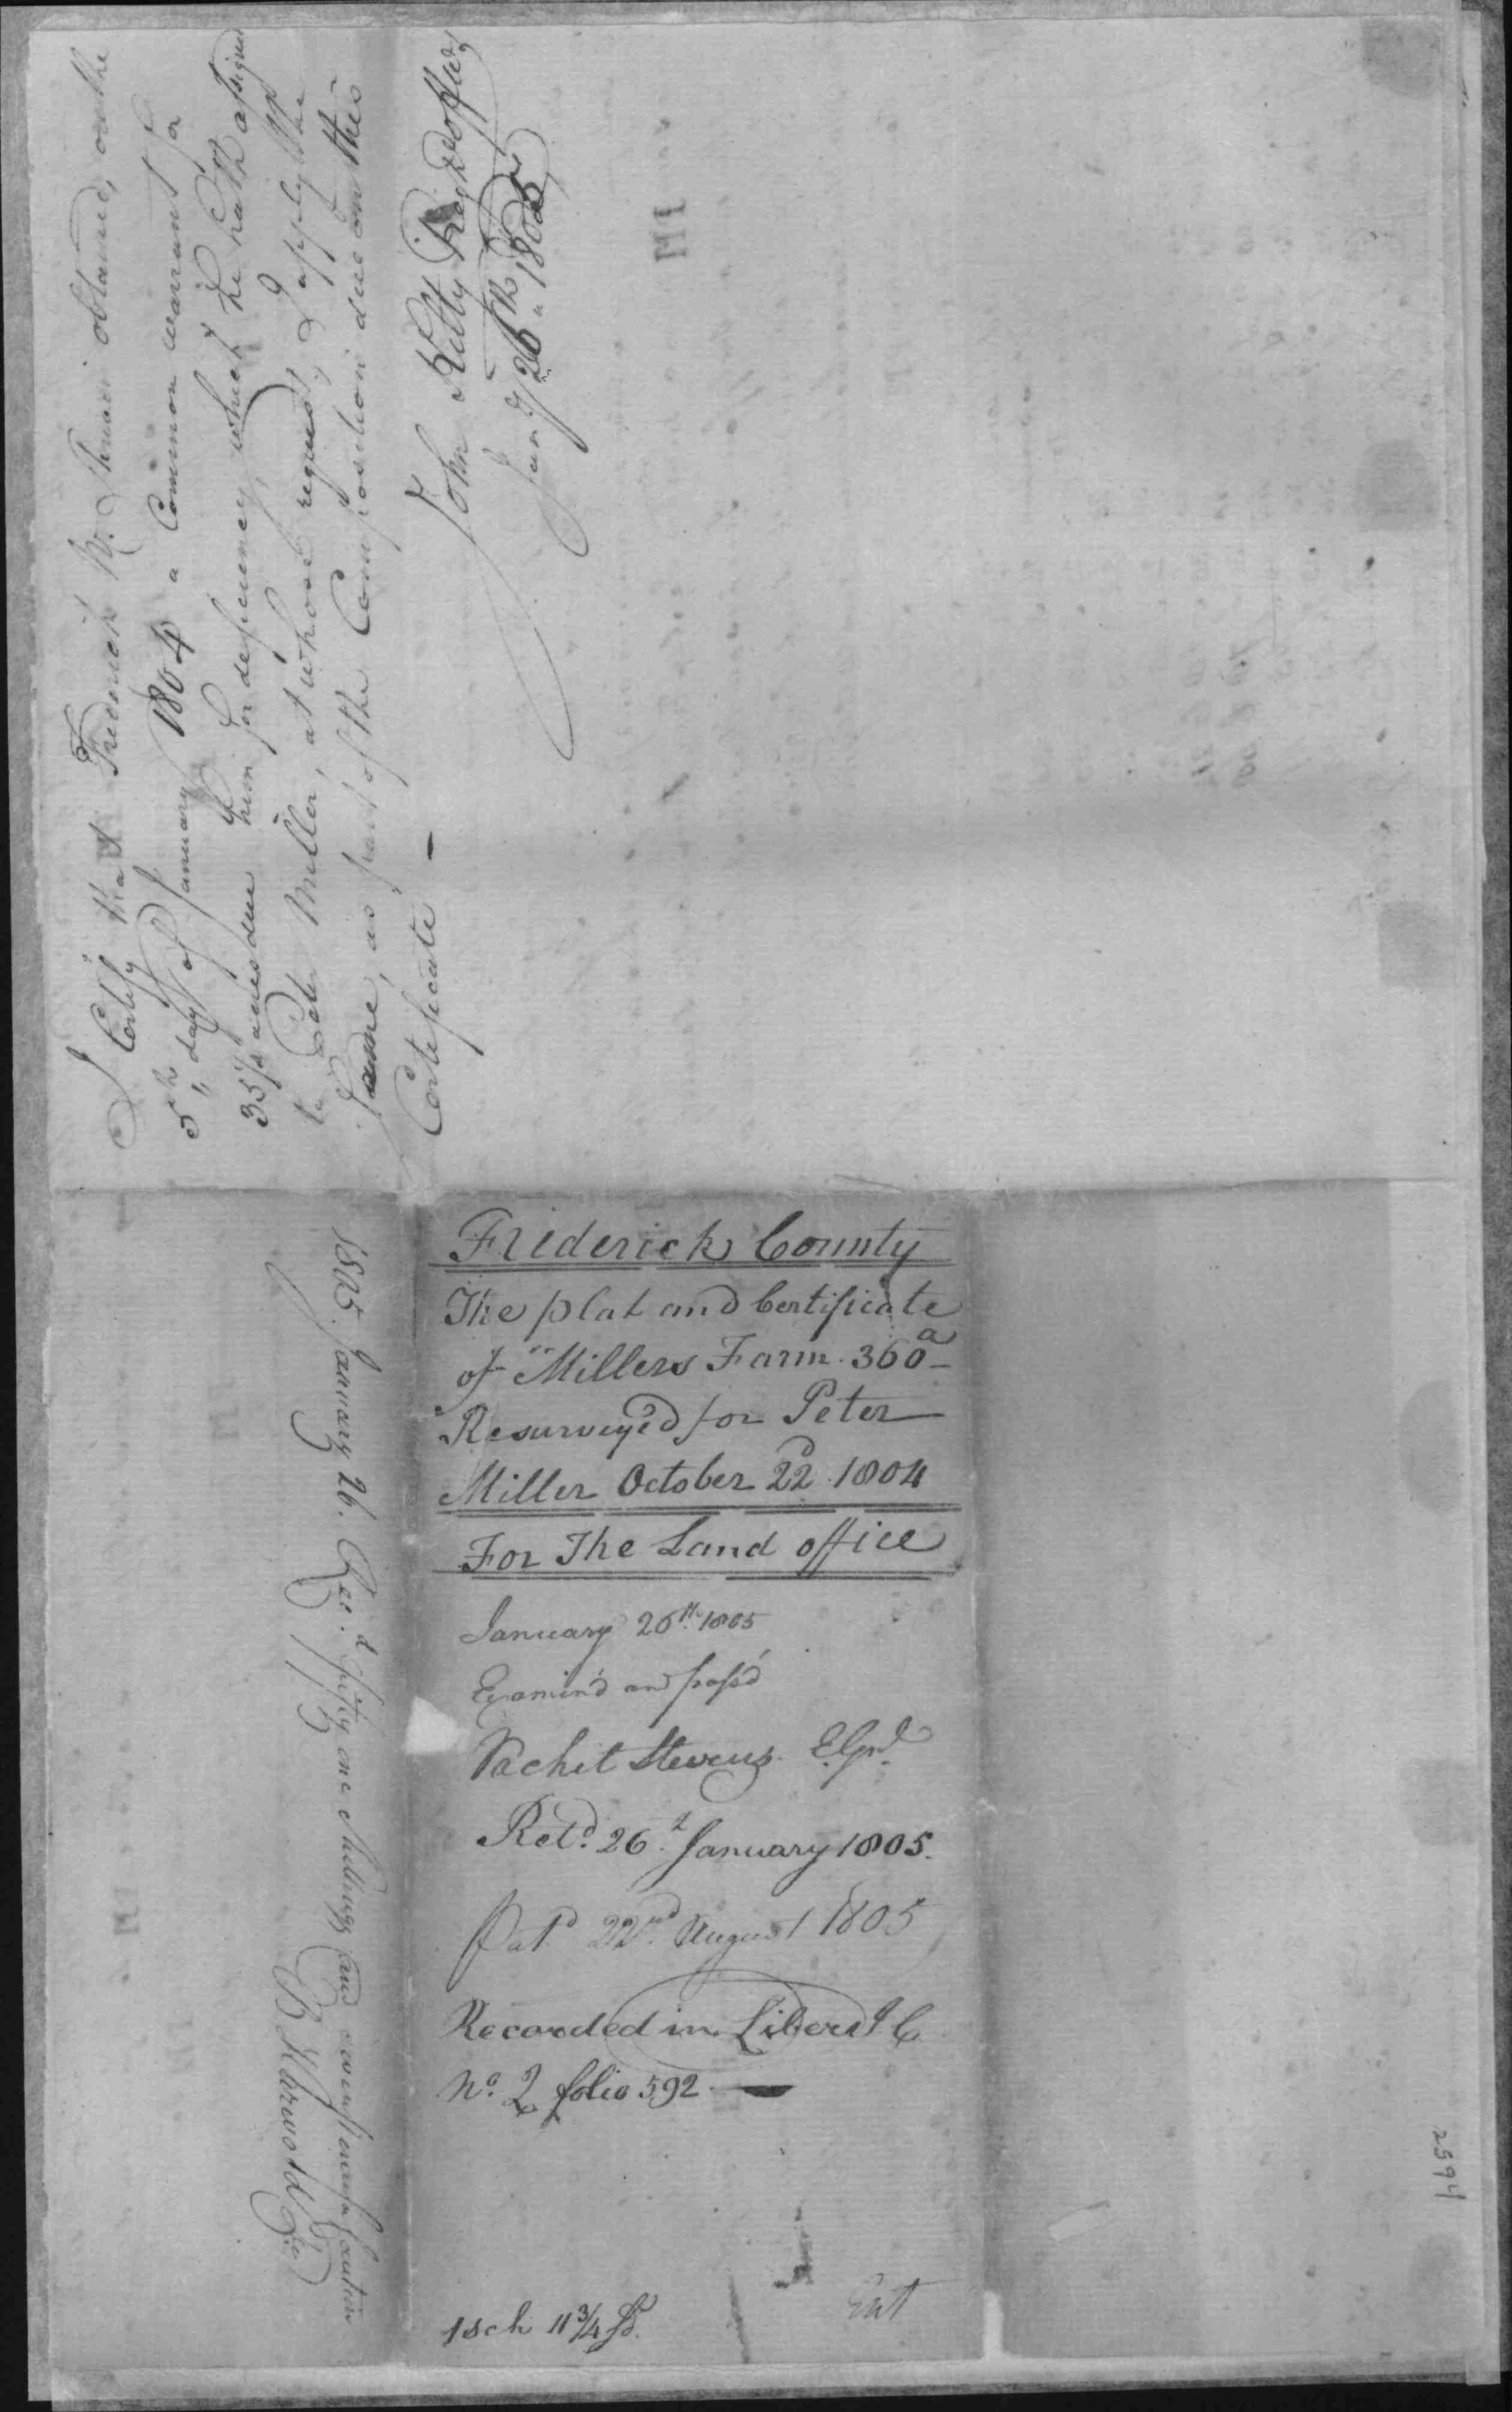 I Certify that Frederick W. obtained, on the
5th day of January 1804 a Common warrant for
35¼ acres due him for deficiency, which he hath assigned
to Peter Miller, at whose request, I apply the
same, as part of the Composition due on this
Certificate —
John Kilty Regr Ld office
Jany 26th 1805
Friderick County
The plat and Certificate
of "Millers Farm. 360 a
Resurveyed for Peter
Miller October 22d 1804
For The Land office
January 26th 1805
Examin'd and pass'd
Vachel Stevens. E. Gnl.
Retd. 26th January 1805.
Patd 22nd August 1805
Recorded in Liber I C
No. 2 folio 592. —
1 sch 11¾ pd.
Ent
1805. January 26. Recd. fifty one shillings and Caution
B Harwood Tr
2594